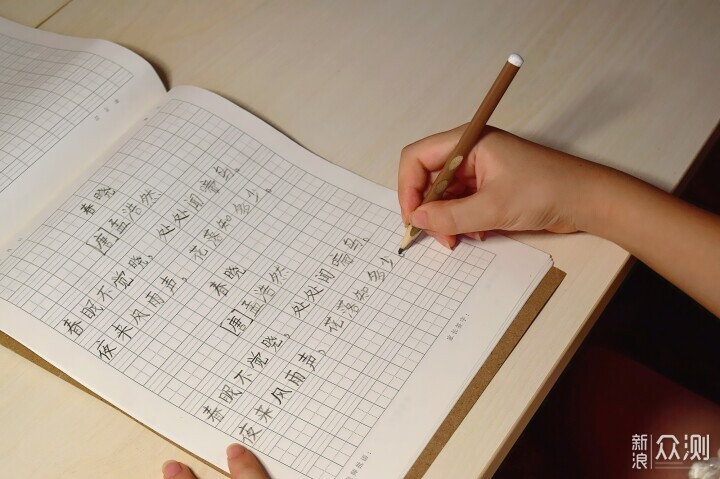 春晓
[唐]孟浩然
春眠不觉晓,处处闻啼鸟。
夜来风雨声,花落知多少。
春晓
[唐]孟浩然
春眠不觉晓,处处闻啼鸟。
夜来风雨声,花落知多少
家长签字:
新浪众测